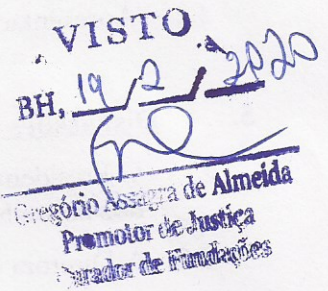 VISTO
BH, 19/2/2020
Gregório Assagra de Almeida
Promotor de Justiça
Curador de Fundações